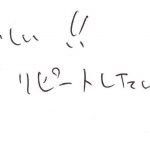 しい!!
リピートしてい